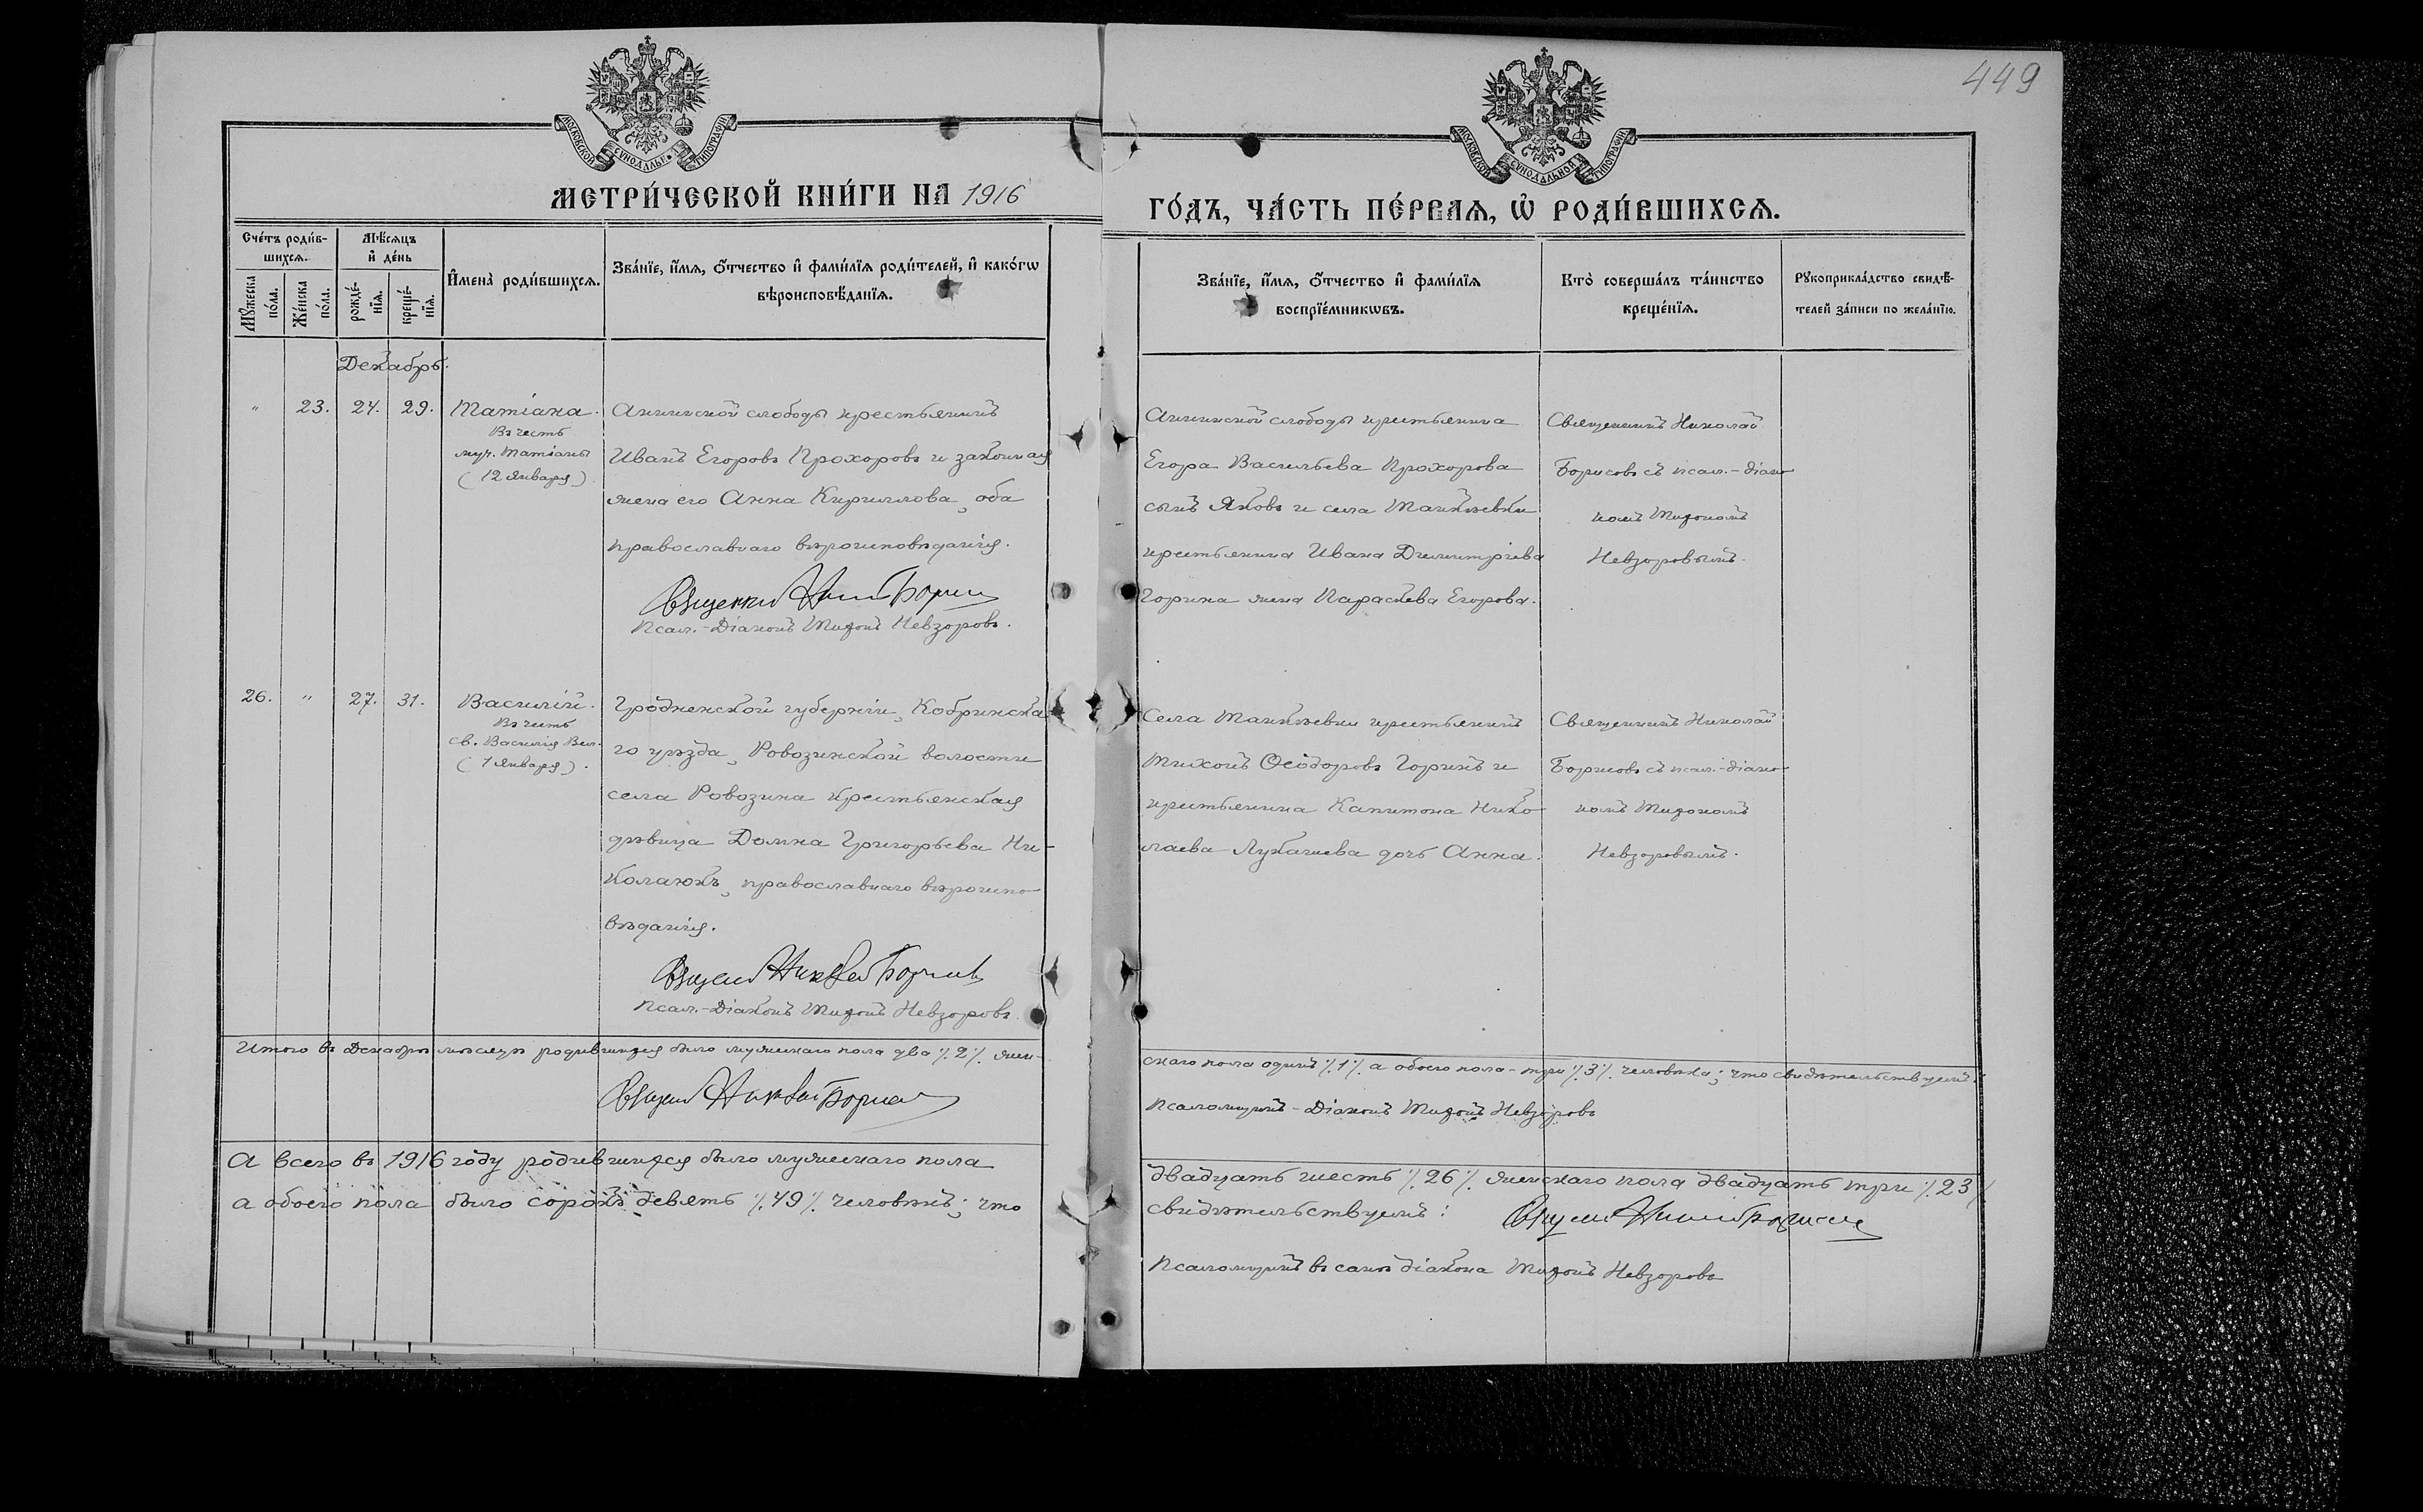 449
МОСКОВСКОЙ СУНОДАЛЬНОЙ ТИПОГРАФІИ
МОСКОВСКОЙ СУНОДАЛЬНОЙ ТИПОГРАФІИ
МЕТРИ́ЧЕСКОЙ КНИ́ГИ НА 1916
ГО́ДЪ, ЧА́СТЬ ПЕ́РВАЯ, Ѡ҆ РОДИ́ВШИХСЯ.
Сче́тъ роди́в-
шихся.
Мѣ́сяцъ
и҆ де́нь
Мꙋ́жеска
по́ла.
Же́нска
по́ла.
рожде́-
нїѧ.
креще́-
нїѧ.
И҆мена̀ роди́вшихсѧ.
Зва́нїе, и҆́мѧ, ѻ҆́тчество и҆ фами́лїѧ роди́телей, и҆ како́гѡ
вѣроисповѣ́данїѧ.
Зва́нїе, и҆́мѧ, ѻ҆́тчество и҆ фами́лїѧ
воспрїе́мникѡвъ.
Кто̀ соверша́лъ та́инство
креще́нїѧ.
Рꙋкоприкла́дство свидѣ́-
телей за́писи по жела́нїю.
Декабрь.
" 23. 24. 29. Татіана.
Въ честь
муч. Татіаны
(12 Января)
крестьянинъ
Иванъ Егоровъ Прохоровъ и законная
жена его Анна Кириллова, оба
православнаго вѣроисповѣданія.
Псал.-Діаконъ Митрофанъ Невзоровъ.
слободы крестьянина
Егора Васильева Прохорова
сынъ Яковъ и села
крестьянина Ивана Димитріева
Горина жена Параскева Егорова.
Священникъ Николай
Борисовъ съ псал.-діако-
номъ
Невзоровымъ.
26. " 27. 31. Василій.
Въ честь
св. Василія Вел.
(1 Января).
Гродненской губерніи, Кобринска-
го уѣзда, Ровозинской волости
села Ровозина крестьянская
дѣвица Домна Григорьева Ни-
колаюкъ, православнаго вѣроиспо-
вѣданія.
Священникъ Николай Борисовъ
Псал.-Діаконъ Невзоровъ.
Села крестьянинъ
Тихонъ Ѳеодоровъ Горинъ и
крестьянина Капитона Нико-
лаева Лукачева дочь Анна.
Священникъ Николай
Борисовъ съ псал.-діако-
номъ
Невзоровымъ.
Итого въ Декабрѣ мѣсяцѣ родившихся было мужескаго пола два ⁒ 2 ⁒ жен-
скаго пола одинъ ⁒ 1 ⁒ а обоего пола - три ⁒ 3 ⁒ человѣка; что свидѣтельствуемъ:
Священникъ Николай Борисовъ
Псаломщикъ-Діаконъ Невзоровъ
А всего въ 1916 году родившихся было мужескаго пола
двадцать шесть ⁒ 26 ⁒ женскаго пола двадцать три ⁒ 23 ⁒
а обоего пола было сорокъ девять ⁒ 49 ⁒ человѣкъ; что
свидѣтельствуемъ: Священникъ Николай Борисовъ
Псаломщикъ въ санѣ діакона Невзоровъ